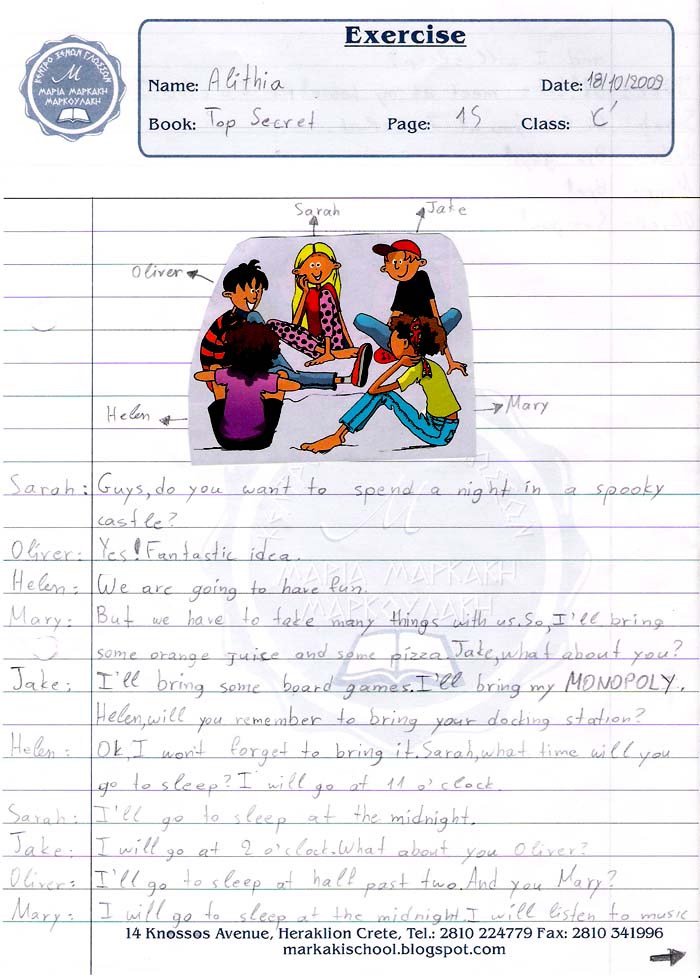 Exercise
ΚΕΝΤΡΟ ΞΕΝΩΝ ΓΛΩΣΣΩΝ
Μ
ΜΑΡΙΑ ΜΑΡΚΑΚΗ
ΜΑΡΚΟΥΛΑΚΗ
Name: Alithia Date: 18/10/2009
Book: Top Secret Page: 15 Class: C'
Sarah
Jake
Oliver
Helen
Mary
Sarah: Guys,do you want to spend a night in a spooky
castle?
Oliver: Yes! Fantastic idea.
Helen: We are going to have fun.
Mary: But we have to take many things with us.So,I'll bring
some orange juice and some pizza.Jake,what about you?
Jake: I'll bring some board games.I'll bring my MONOPOLY.
Helen,will you remember to bring your docking station?
Helen: Ok,I won't forget to bring it.Sarah,what time will you
go to sleep?I will go at 11 o'clock.
Sarah: I'll go to sleep at the midnight.
Jake: I will go at 2 o'clock.What about you Oliver?
Oliver: I'll go to sleep at half past two.And you Mary?
Mary: I will go to sleep at the midnight.I will listen to music
ΜΑΡΙΑ ΜΑΡΚΑΚΗ
ΜΑΡΚΟΥΛΑΚΗ
14 Knossos Avenue, Heraklion Crete, Tel.: 2810 224779 Fax: 2810 341996
markakischool.blogspot.com